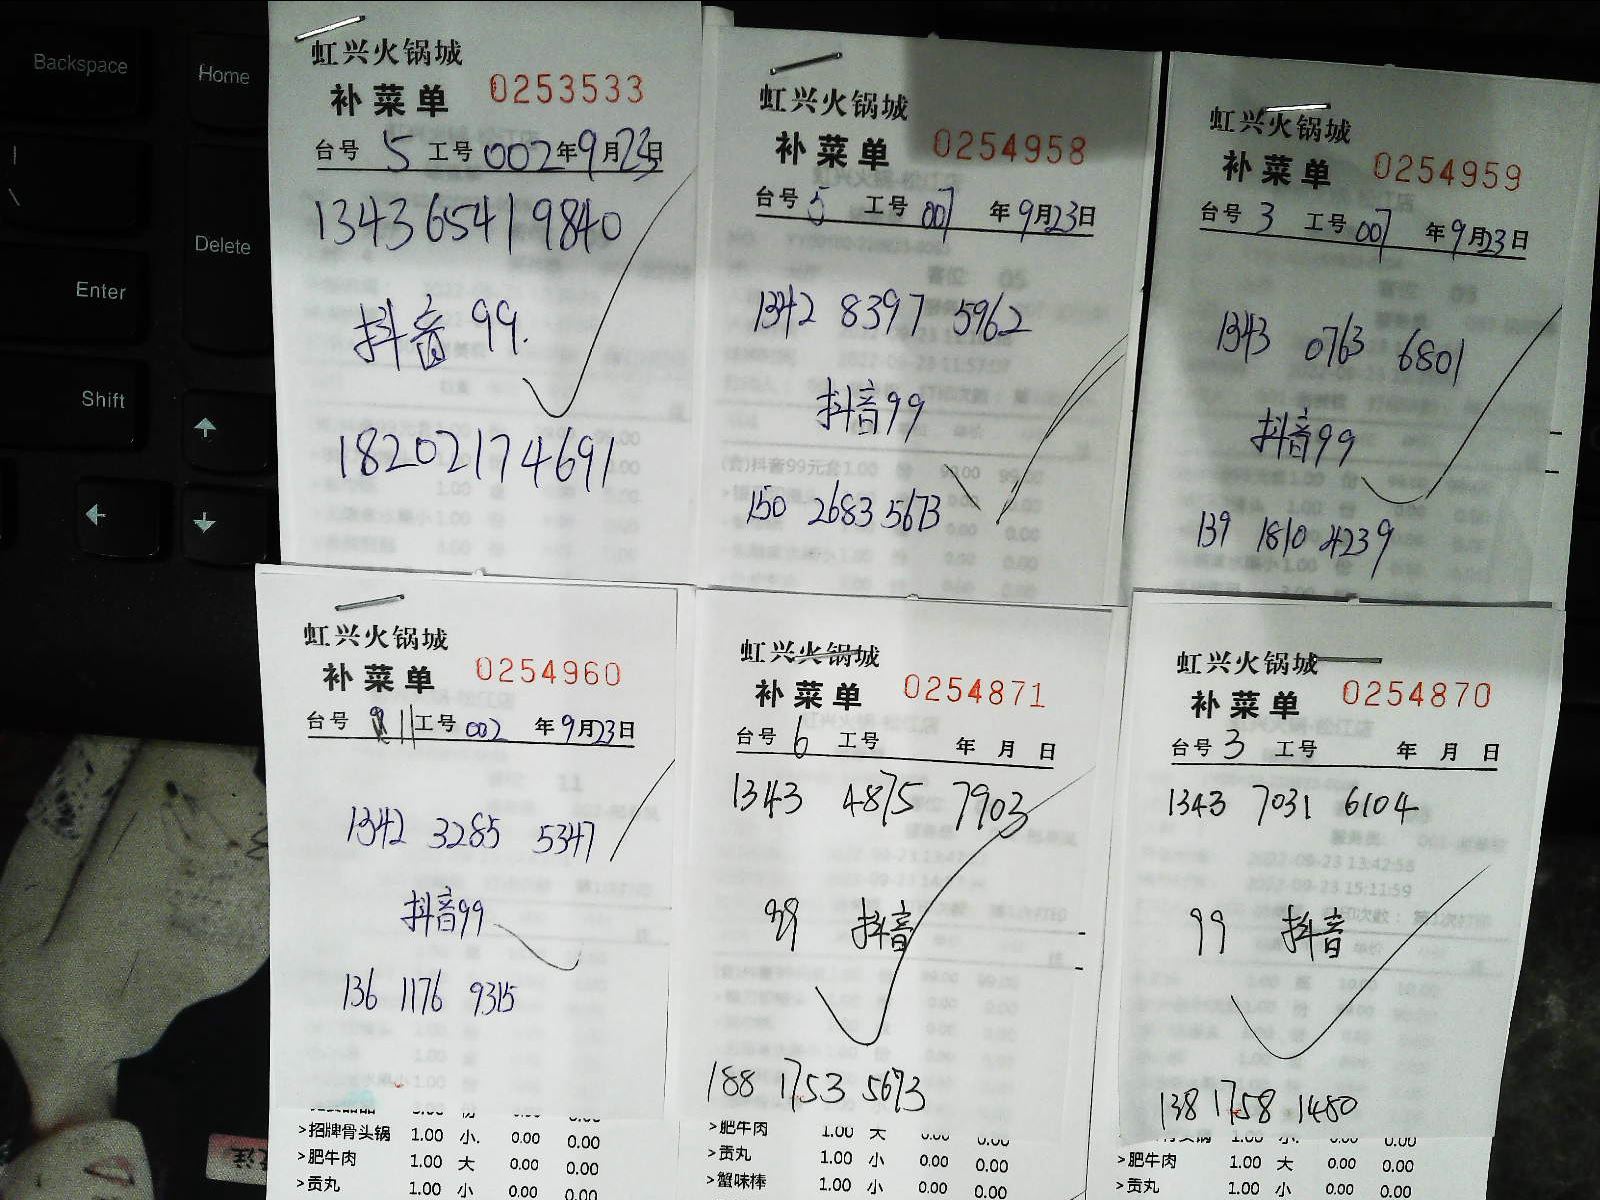 Backspace
Home
Delete
Enter
Shift
虹兴火锅城
补菜单 0253533
台号 5 工号 002 年 9 月 23 日
1343 6541 9840
抖音 99.
18202174691
虹兴火锅城
补菜单 0254958
台号 5 工号 007 年 9 月 23 日
1342 8397 5962
抖音99
150 2683 5673
虹兴火锅城
补菜单 0254959
台号 3 工号 007 年 9 月 23 日
1343 0763 6801
抖音99
139 1810 4239
虹兴火锅城
补菜单 0254960
台号 11 工号 002 年 9 月 23 日
1342 3285 5347
抖音99
136 1176 9315
>招牌骨头锅 1.00 小. 0.00 0.00
>肥牛肉 1.00 大 0.00 0.00
>贡丸 1.00 小 0.00 0.00
虹兴火锅城
补菜单 0254871
台号 6 工号 年 月 日
1343 4875 7903
99 抖音
188 1753 5673
>肥牛肉 1.00 大 0.00 0.00
>贡丸 1.00 小 0.00 0.00
>蟹味棒 1.00 小 0.00 0.00
虹兴火锅城
补菜单 0254870
台号 3 工号 年 月 日
1343 7031 6104
99 抖音
138 1758 1480
>肥牛肉 1.00 大 0.00 0.00
>贡丸 1.00 小 0.00 0.00